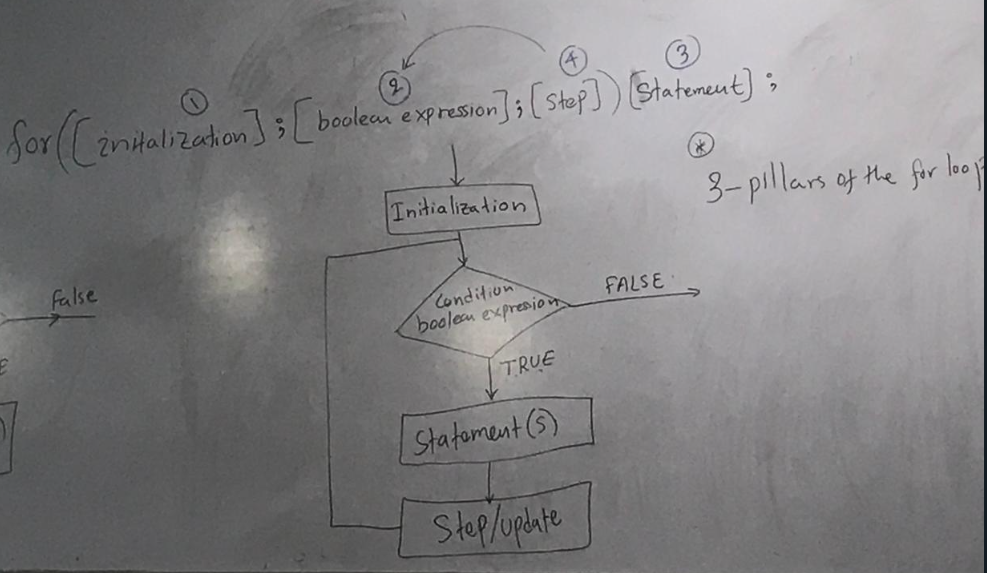 ① ② ④ ③
for([initalization];[boolean expression];[step])[Statement];
*
3-pillars of the for loop
Initialization
Condition
boolean expresion
FALSE
TRUE
Statement(s)
Step/update
False
E